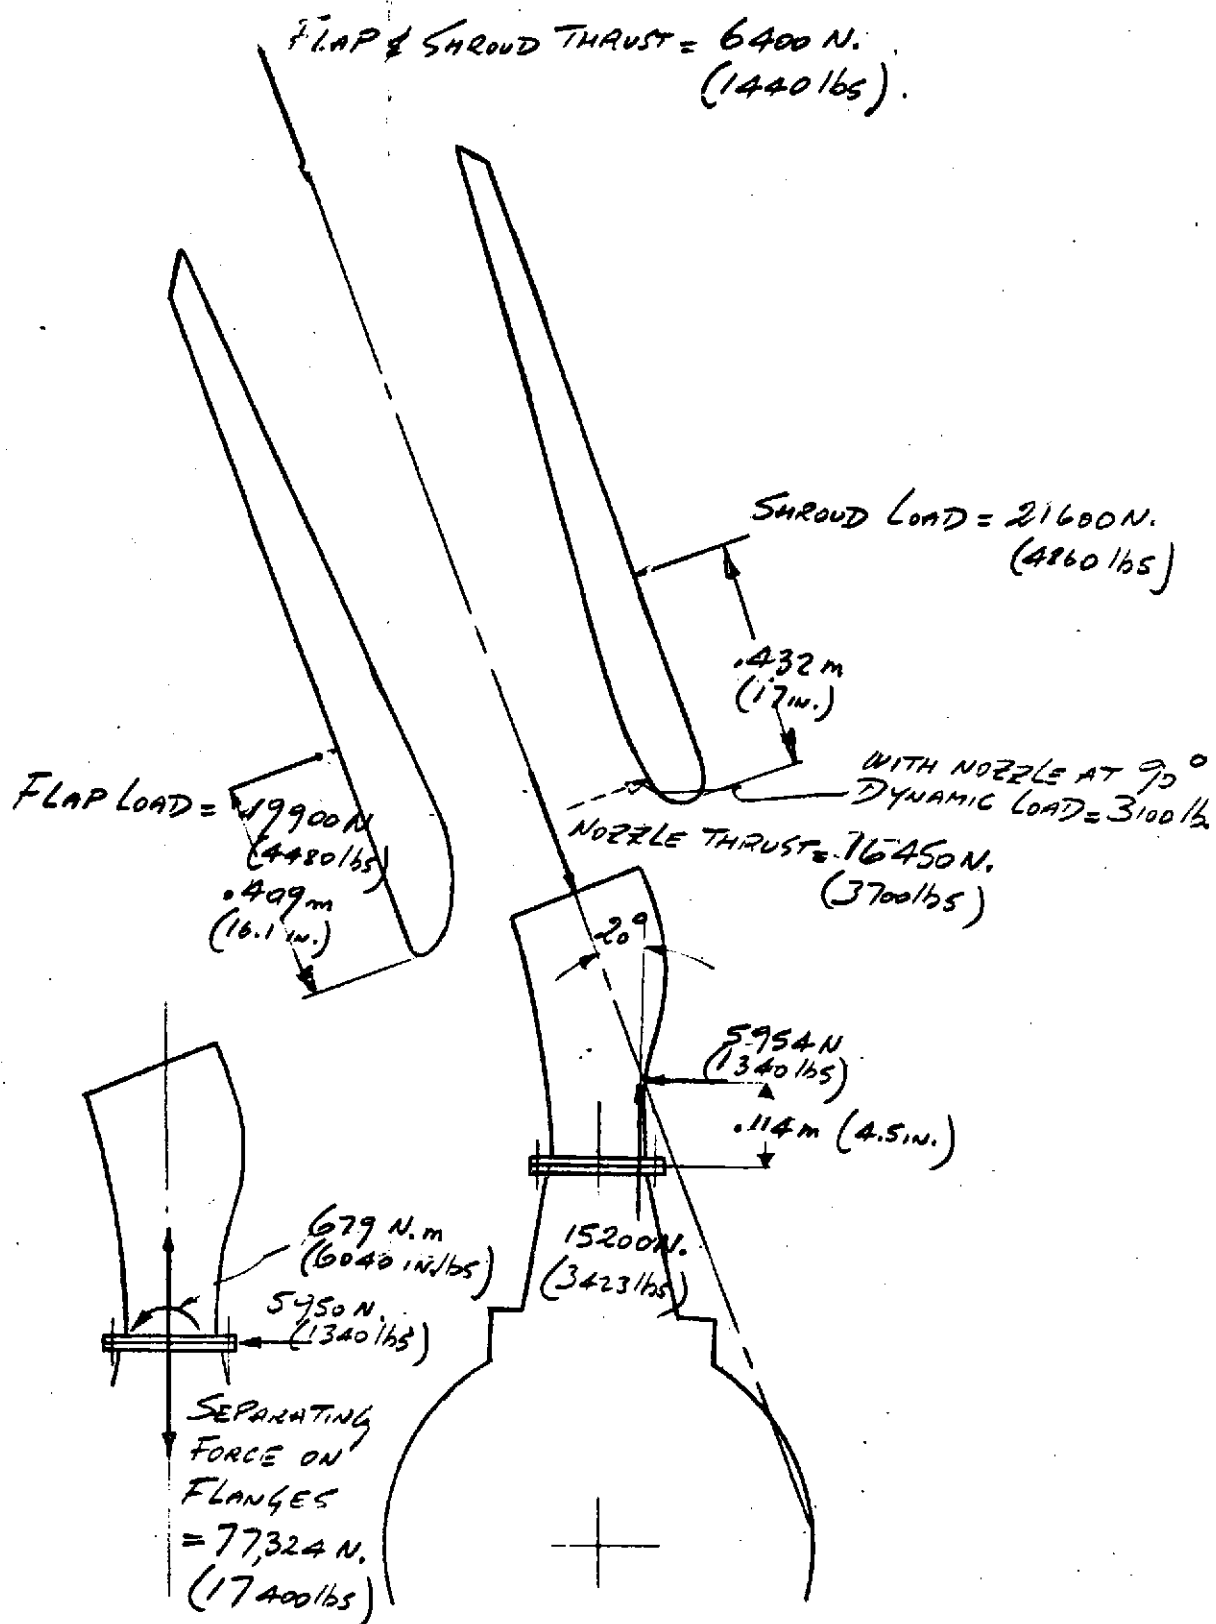 FLAP & SHROUD THRUST = 6400 N.
(1440 lbs).
SHROUD LOAD = 21600 N.
(4860 lbs)
.432 m
(17 IN.)
WITH NOZZLE AT 90°
DYNAMIC LOAD = 3100 lb
FLAP LOAD = 19900 N
(4480 lbs)
.409 m
(16.1 IN.)
NOZZLE THRUST = 16450 N.
(3700 lbs)
20°
5954 N
(1340 lbs)
.114 m (4.5 IN.)
679 N.m
(6040 IN/lbs)
5950 N.
(1340 lbs)
15200 N.
(3423 lbs)
SEPARATING
FORCE ON
FLANGES
= 77,324 N.
(17400 lbs)